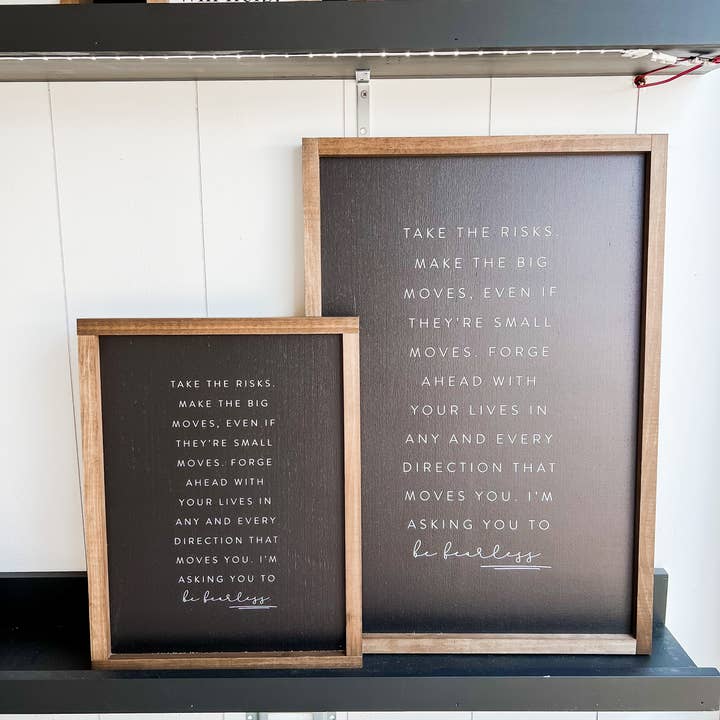 TAKE THE RISKS.
MAKE THE BIG
MOVES, EVEN IF
THEY'RE SMALL
MOVES. FORGE
AHEAD WITH
YOUR LIVES IN
ANY AND EVERY
DIRECTION THAT
MOVES YOU. I'M
ASKING YOU TO
be fearless.
TAKE THE RISKS.
MAKE THE BIG
MOVES, EVEN IF
THEY'RE SMALL
MOVES. FORGE
AHEAD WITH
YOUR LIVES IN
ANY AND EVERY
DIRECTION THAT
MOVES YOU. I'M
ASKING YOU TO
be fearless.